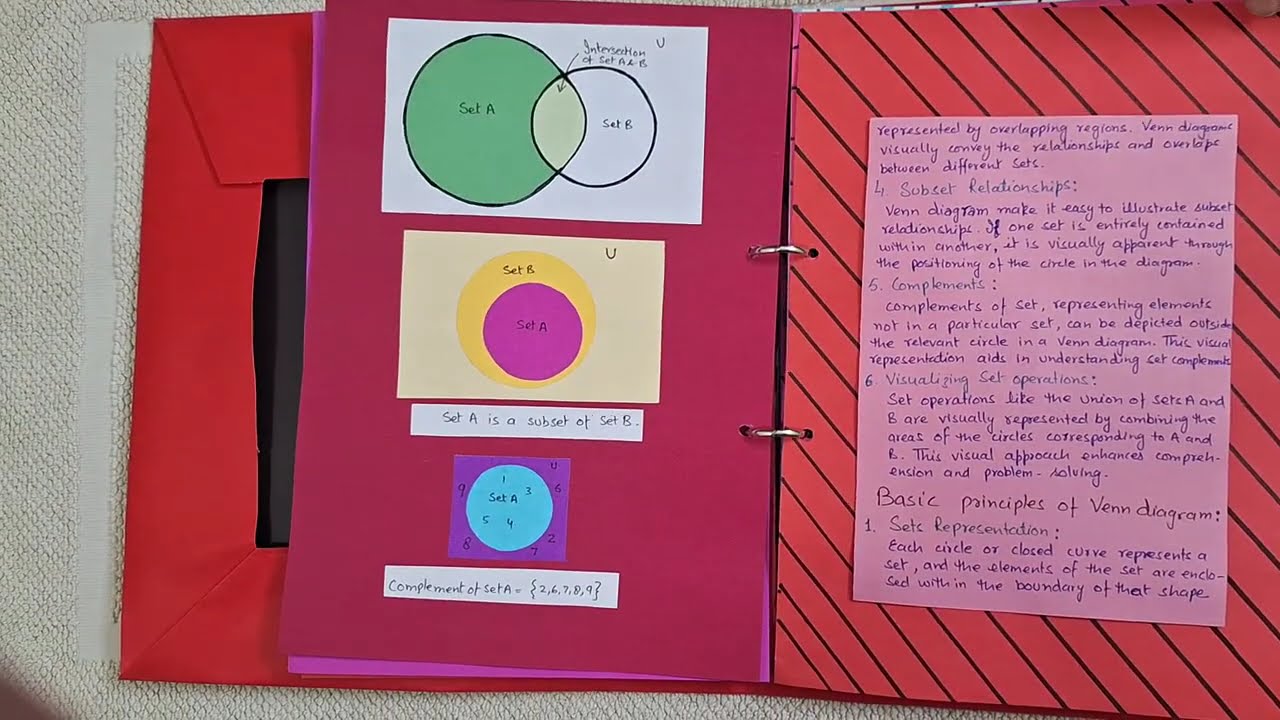 Intersection
of Set A & B
U
Set A
Set B
U
Set B
Set A
Set A is a subset of Set B.
U
1
9
Set A
3
6
5
4
8
2
7
Complement of Set A = {2,6,7,8,9}
represented by overlapping regions. Venn diagrams
visually convey the relationships and overlaps
between different sets.
4. Subset Relationships:
Venn diagram make it easy to illustrate subset
relationships. If one set is entirely contained
within another, it is visually apparent through
the positioning of the circle in the diagram.
5. Complements:
Complements of set, representing elements
not in a particular set, can be depicted outside
the relevant circle in a Venn diagram. This visual
representation aids in understanding set complements
6. Visualizing Set operations:
Set operations like the union of sets A and
B are visually represented by combining the
areas of the circles corresponding to A and
B. This visual approach enhances compreh-
ension and problem-solving.
Basic principles of Venn diagram:
1. Sets Representation:
Each circle or closed curve represents a
set, and the elements of the set are enclo-
sed with in the boundary of that shape